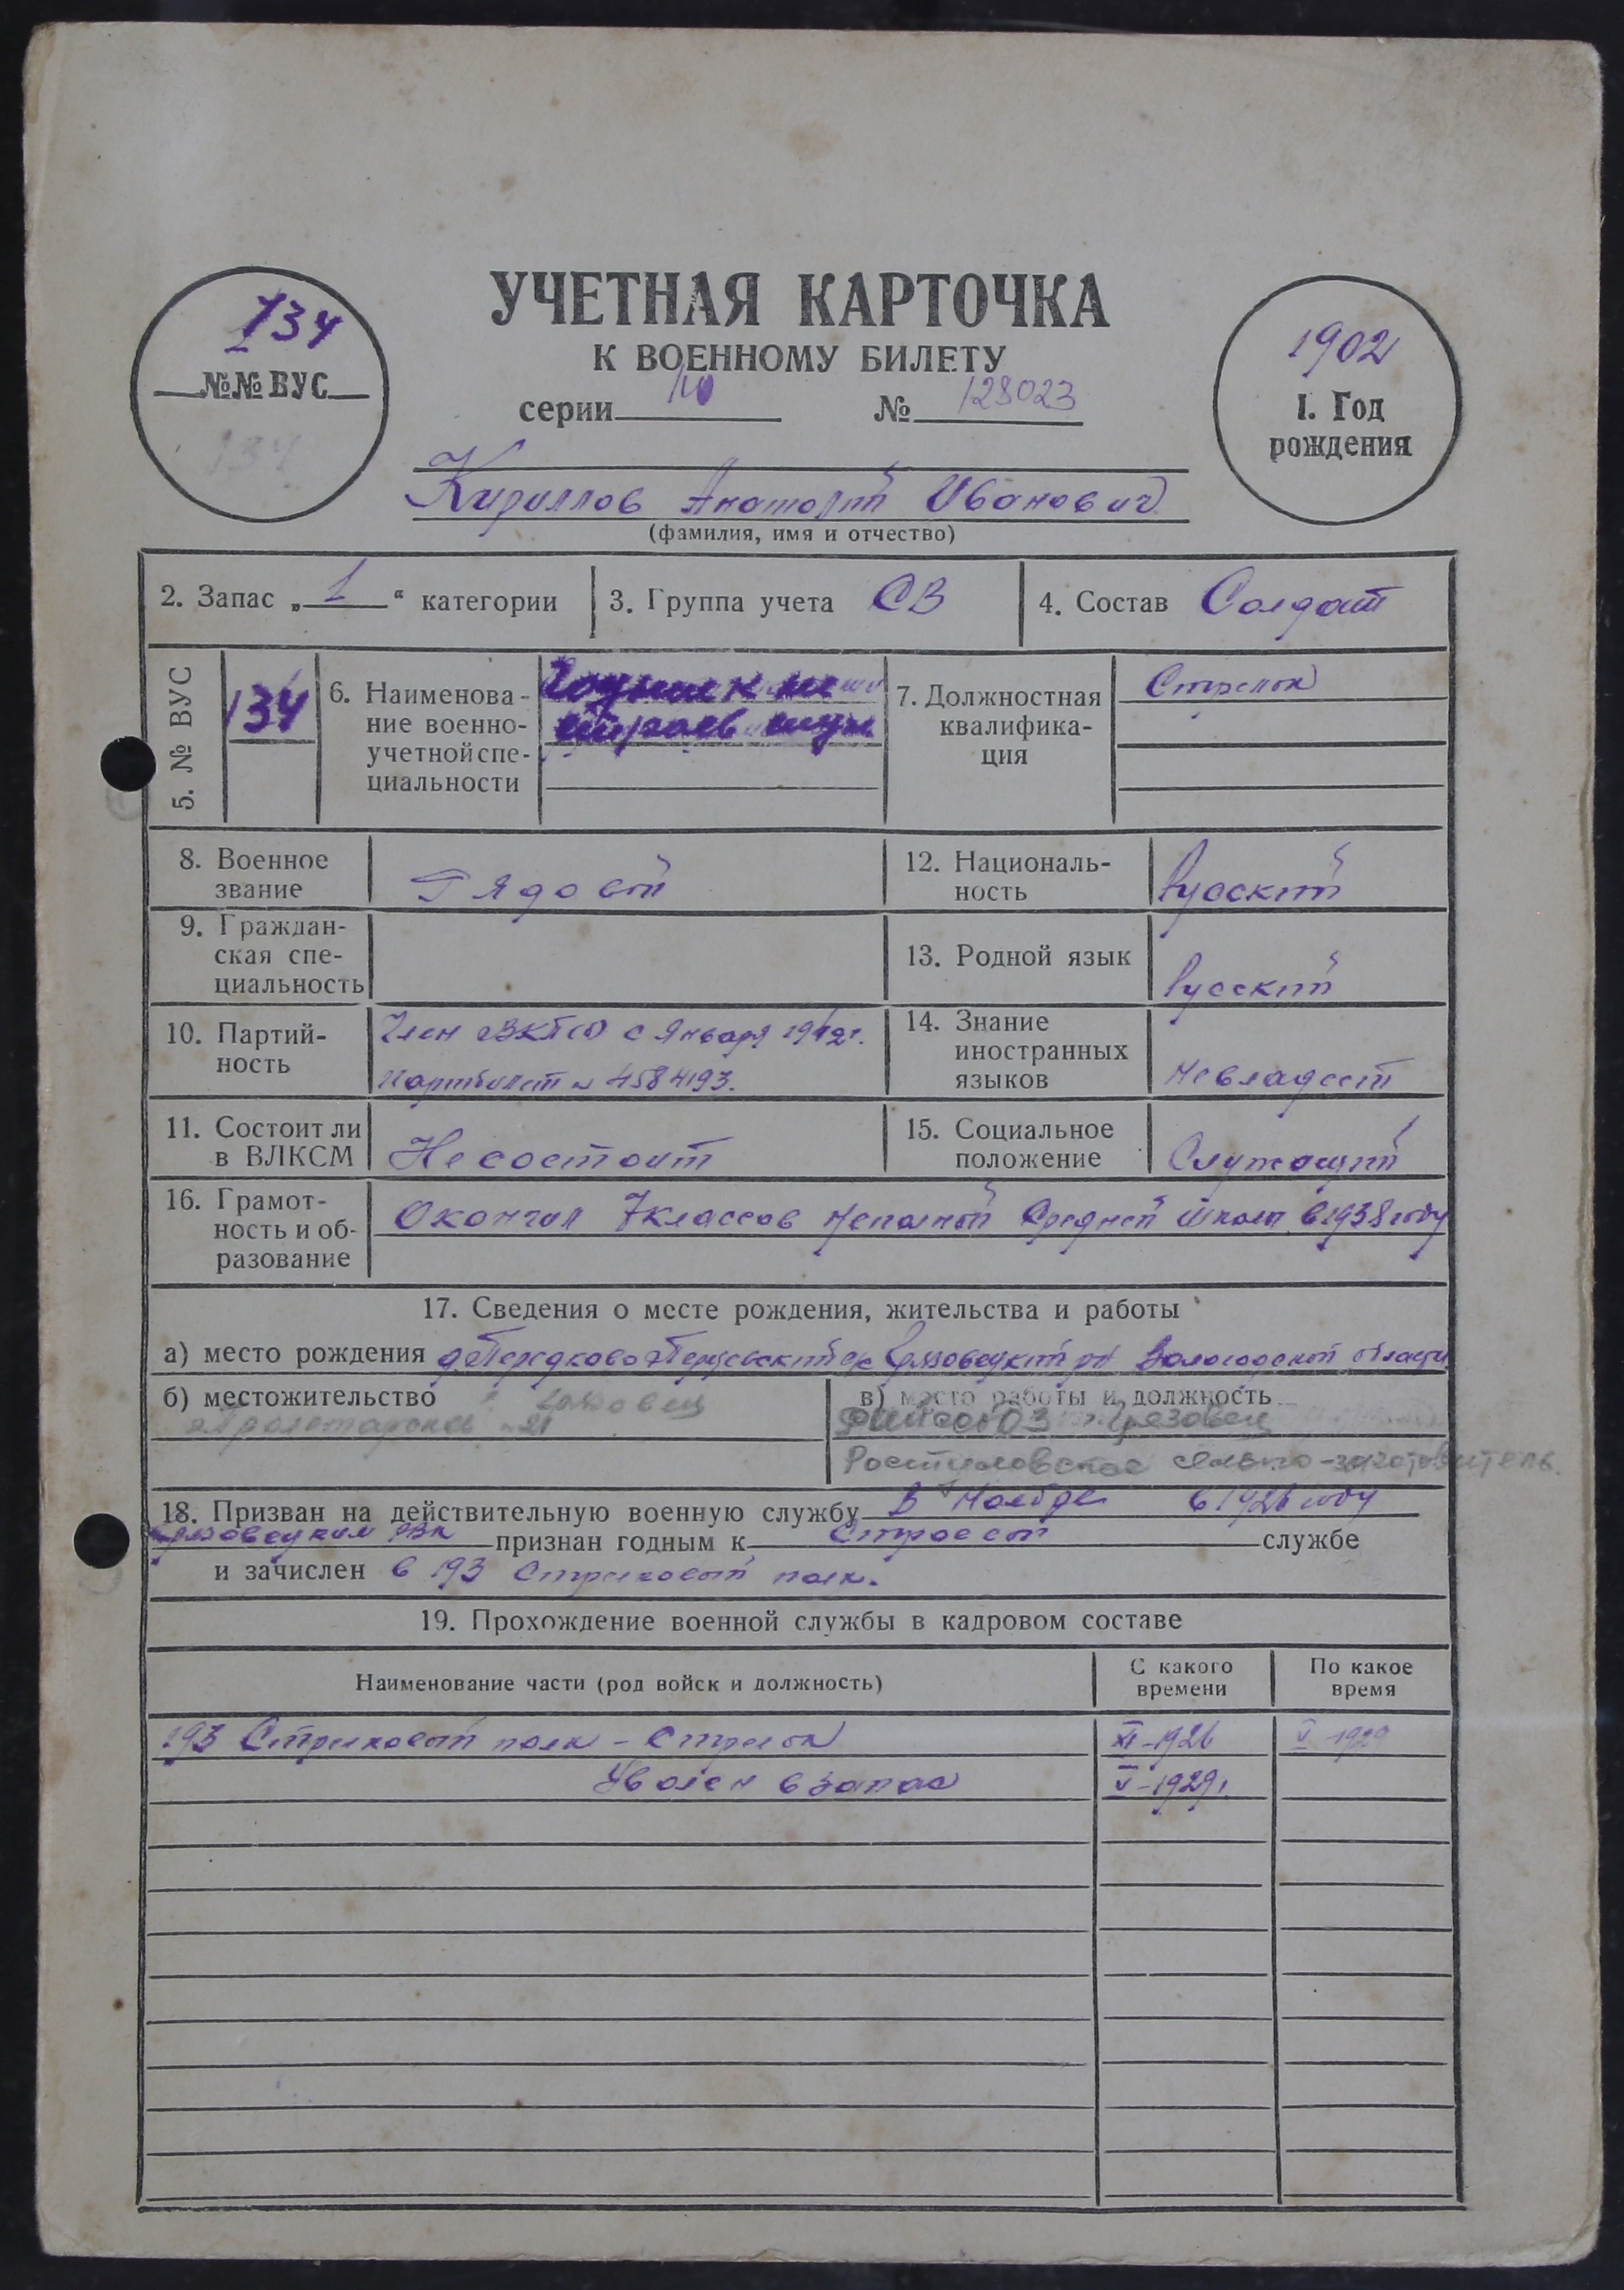 УЧЕТНАЯ КАРТОЧКА
К ВОЕННОМУ БИЛЕТУ
134
№№ ВУС
134
серии № 128023
1902
1. Год
рождения
Кириллов Анатолий Иванович
(фамилия, имя и отчество)
2. Запас „ 1 “ категории
3. Группа учета СВ
4. Состав Солдат
5. № ВУС
134
6. Наименова-
ние военно-
учетной спе-
циальности
Годные к не
строев служ
7. Должностная
квалифика-
ция
Стрелок
8. Военное
звание
Рядовой
9. Граждан-
ская спе-
циальность
10. Партий-
ность
Член ВКП(б) с Января 1942г.
партбилет № 4584193.
11. Состоит ли
в ВЛКСМ
Не состоит
12. Националь-
ность
Русский
13. Родной язык
Русский
14. Знание
иностранных
языков
Не владеет
15. Социальное
положение
Служащий
16. Грамот-
ность и об-
разование
Окончил 7 классов Неполной Средней школы в 1938 году
17. Сведения о месте рождения, жительства и работы
а) место рождения Грязовецкий рн Вологодской области
б) местожительство Грязовец
Пролетарская 21
в) место работы и должность
Грязовец
Ростиловское сельпо - заготовитель.
18. Призван на действительную военную службу В Ноябре в 1926 году
Грязовецким РВК признан годным к Строевой службе
и зачислен в 193 Стрелковый полк.
19. Прохождение военной службы в кадровом составе
Наименование части (род войск и должность)
С какого
времени
По какое
время
193 Стрелковый полк - Стрелок XI-1926 V-1929
Уволен в запас V-1929г.